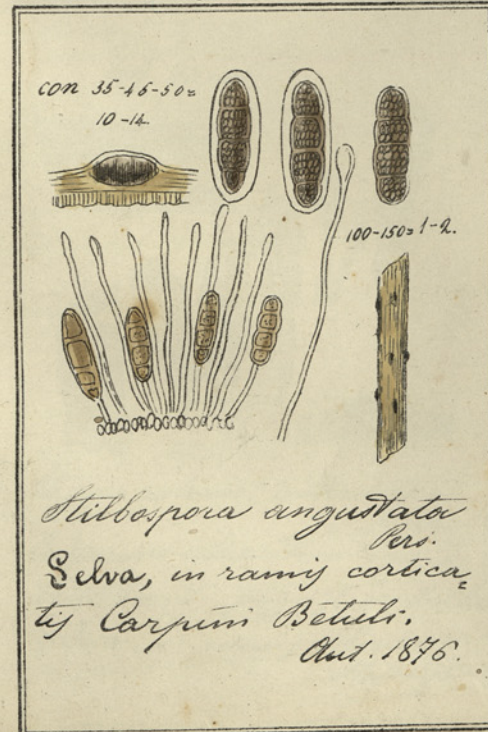 con 35-45-50=
10-14
100-150=1-2.
Stilbospora angustata
Pers.
Selva, in ramis cortica=
tis Carpini Betuli.
Aut. 1876.